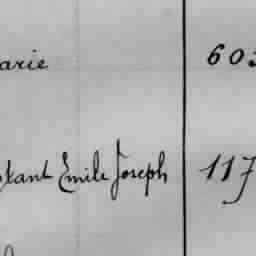 arie 603
stant Emile Joseph 117